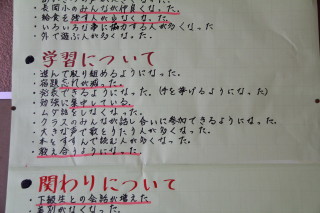 ・長関小のみんなが仲良くなった。
・給食を残す人が少なくなった。
・いろいろな事に協力する人が多くなった
・外で遊ぶ人が多くなった。
●学習について
・進んで取り組めるようになった。
・宿題忘れが減った。
・発表できるようになった。(手を挙げるようになった)
・勉強に集中している。
・ムダ話をしなくなった。
・クラスのみんなが話し合いに参加できるようになった。
・大きな声で歌をうたう人が多くなった。
・本をすすんで読む人が多くなった。
・教え合うようになった。
●関わりについて
・下級生との会話が増えた。
・差別がなくなった。